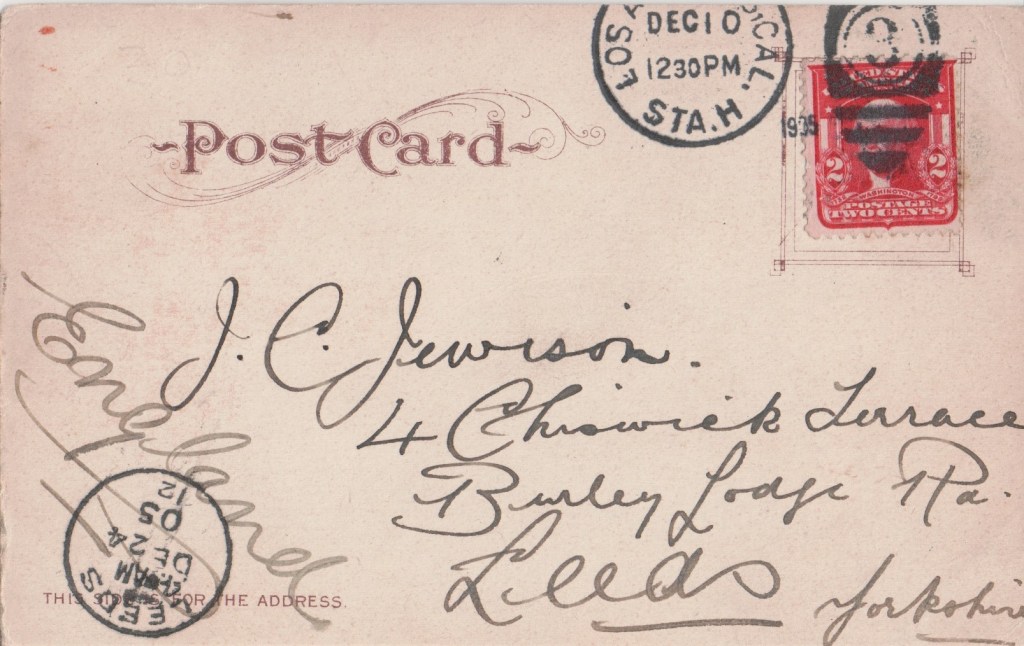 DEC 10
1230PM
STA. H
LOS CAL.
3
1905
Post Card
2 2
WASHINGTON
POSTAGE
TWO CENTS
J. C. Jewison.
4 Chiswick Terrace
Burley Lodge Rd.
Leeds
Yorkshire
England
LEEDS
AM
DE 24
05
12
THIS SIDE IS FOR THE ADDRESS.